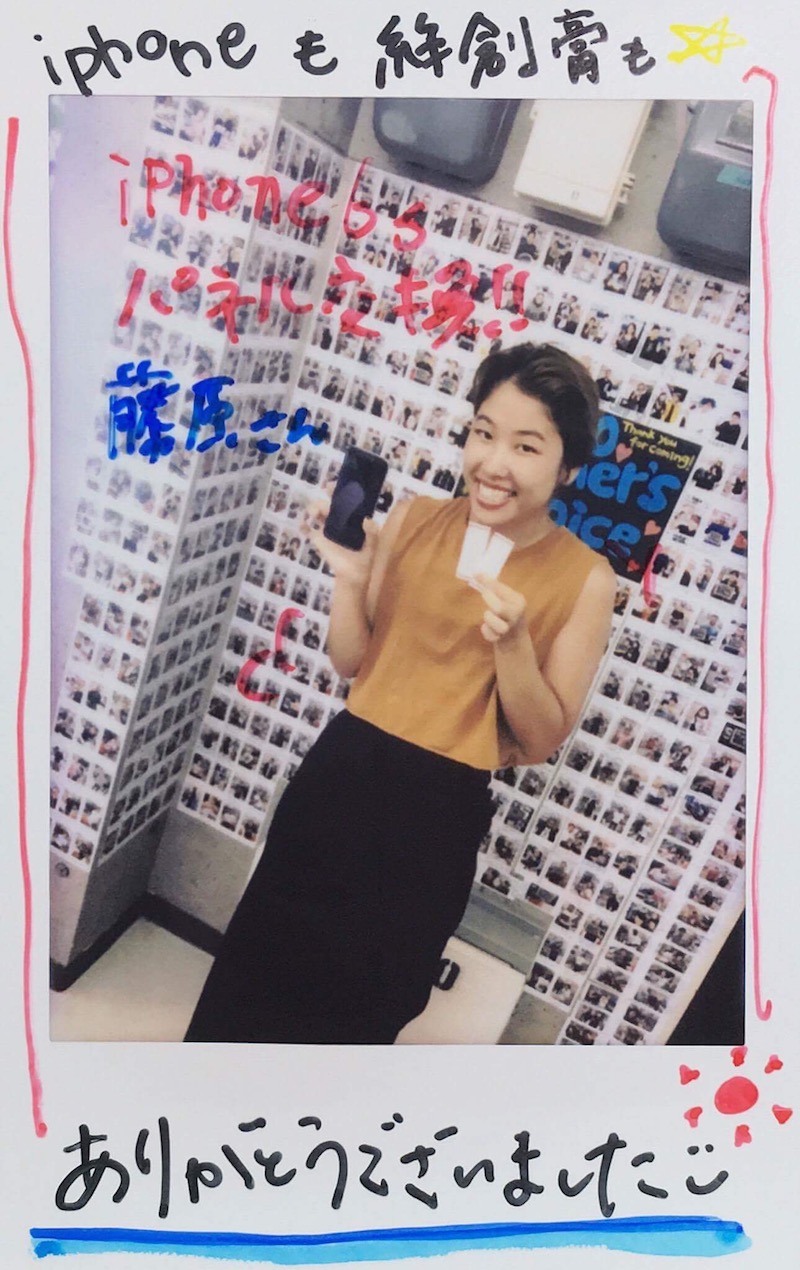 iphone も 絆創膏も
iPhone 6s
パネル交換!!
藤原さん
Thank you
for coming!
ありがとうございました